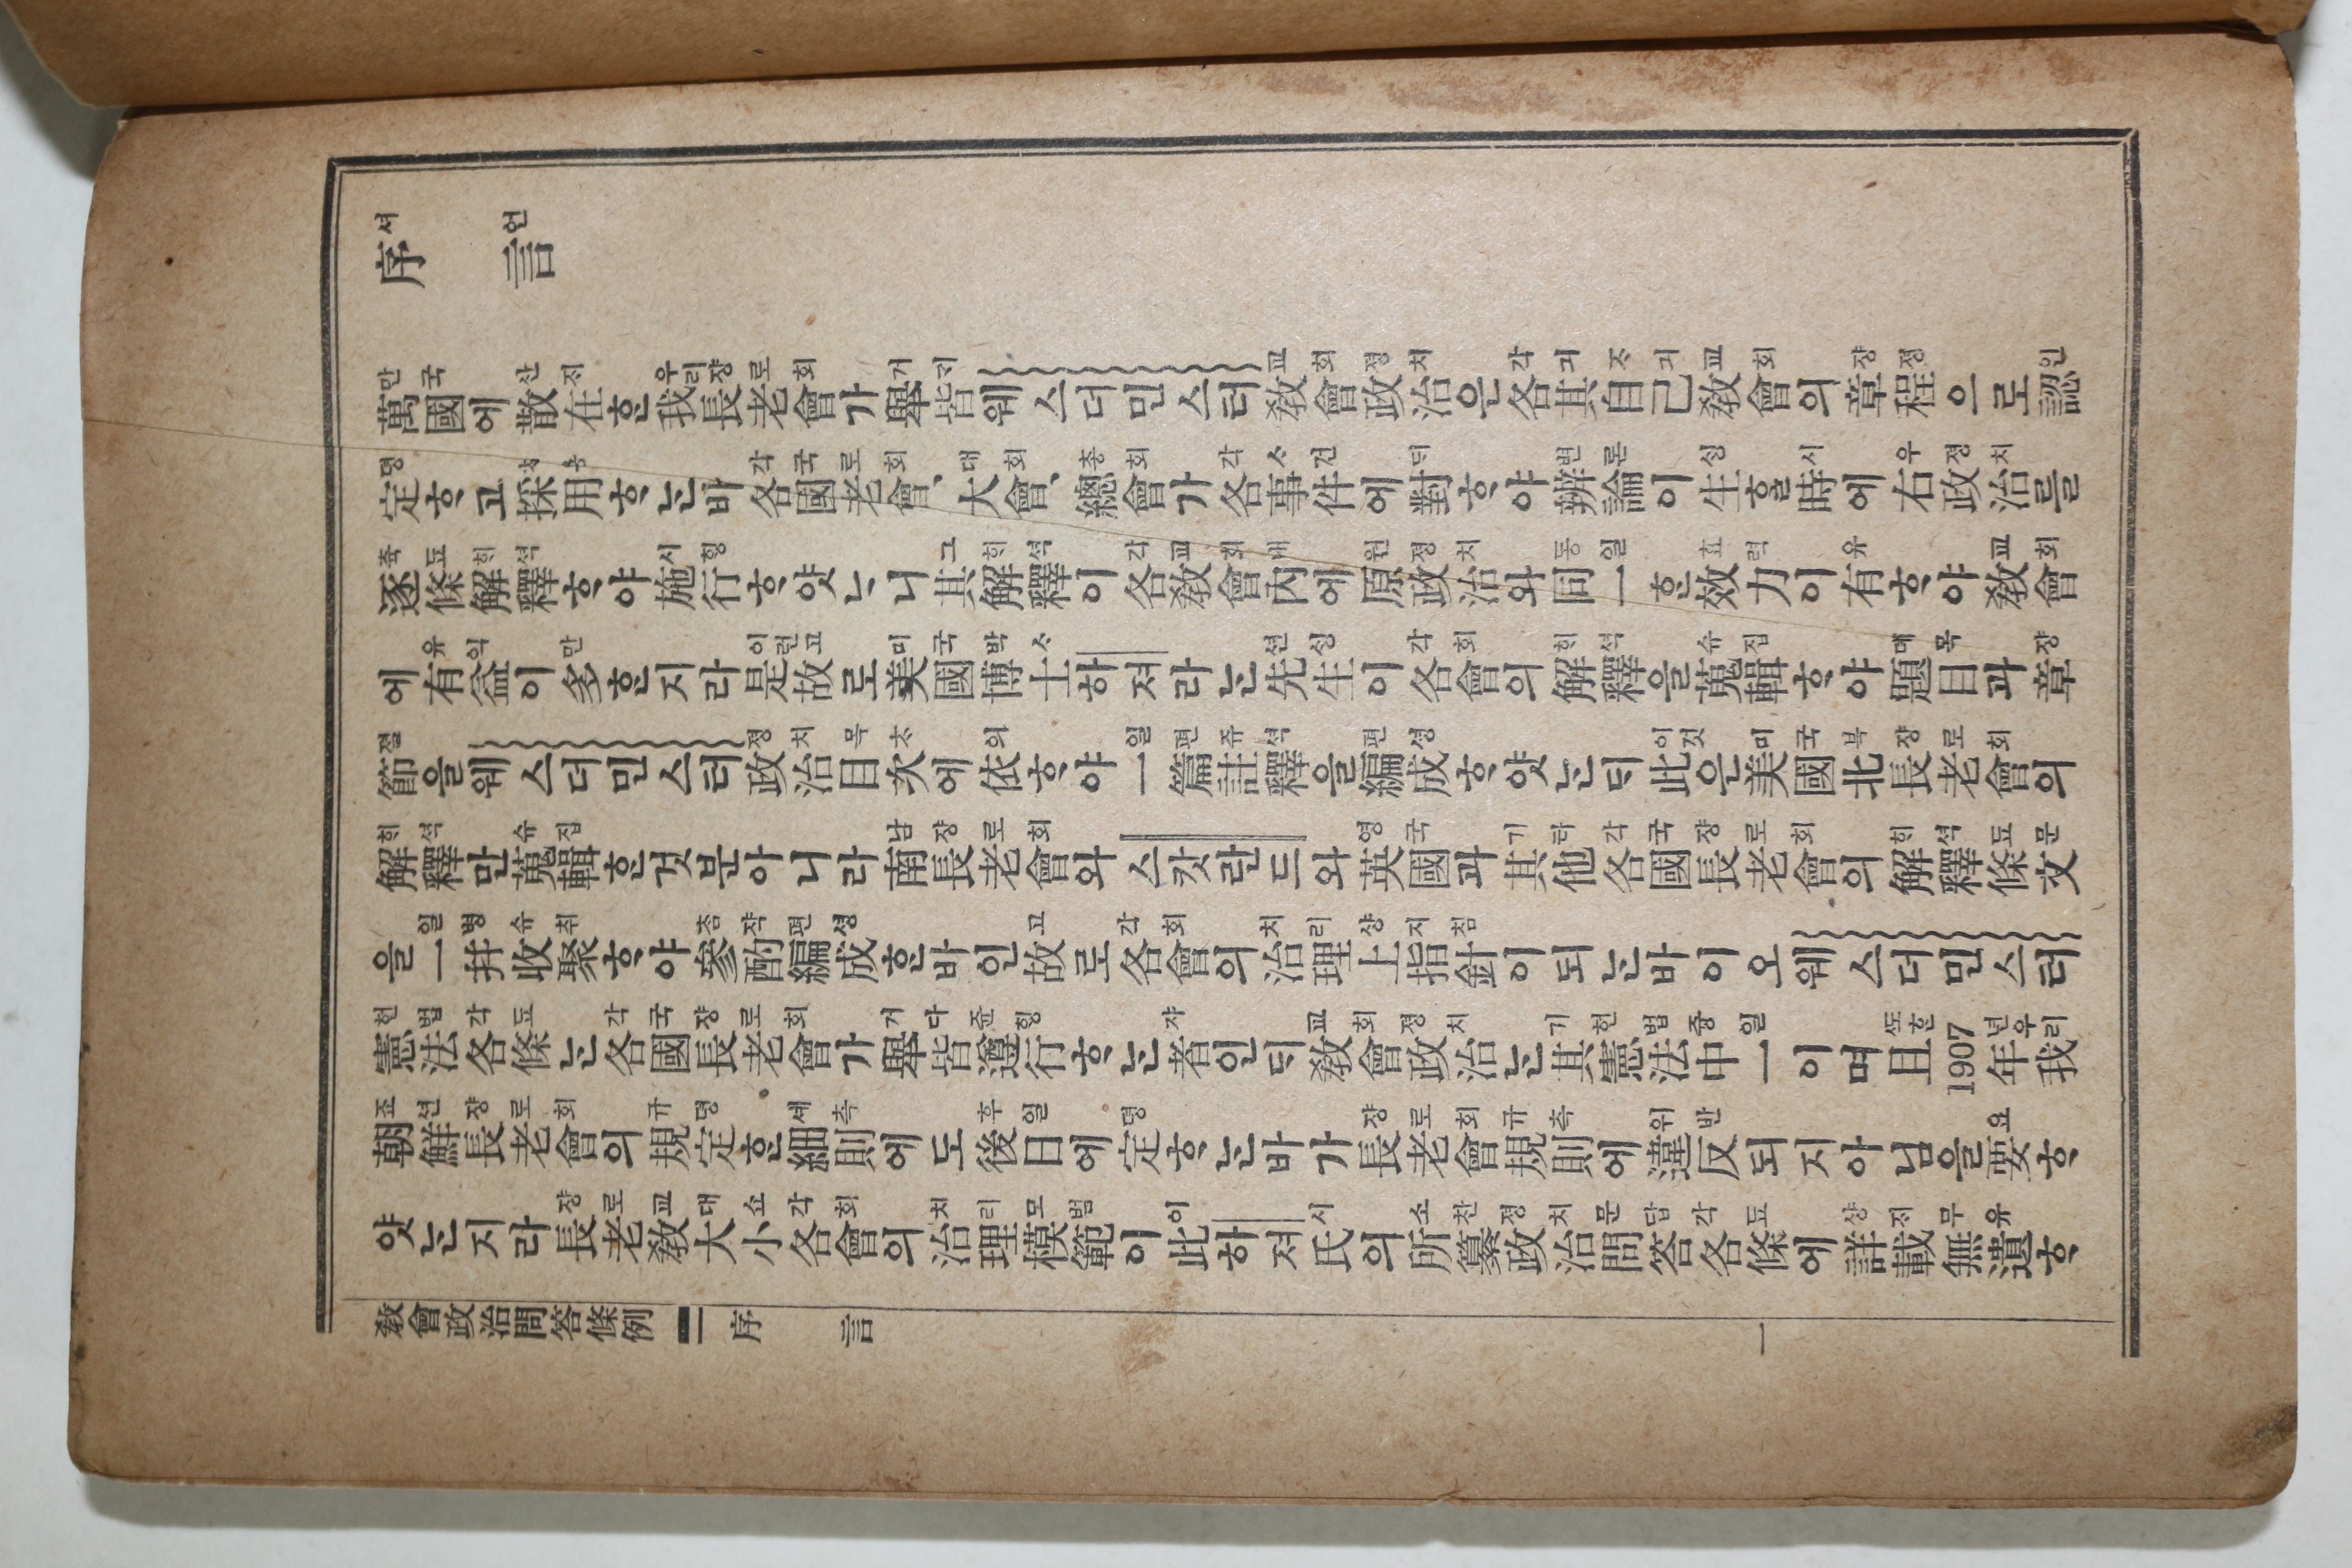 序言
萬國에散在ᄒᆞᆫ我長老會가舉皆웨스더민스터敎會政治은各其自己敎會의章程으로認
定ᄒᆞ고採用ᄒᆞᄂᆞᆫ바各國老會、大會、總會가各事件에對ᄒᆞ야辨論이生ᄒᆞᆯ時에右政治를
逐條解釋ᄒᆞ야施行ᄒᆞ얏ᄂᆞ니其解釋이各敎會內에原政治와同一ᄒᆞᆫ效力이有ᄒᆞ야敎會
에有益이多ᄒᆞᆫ지라是故로美國博士하져라ᄂᆞᆫ先生이各會의解釋을蒐輯ᄒᆞ야題目과章
節을웨스더민스터政治目次에依ᄒᆞ야一篇註釋을編成ᄒᆞ얏ᄂᆞᆫᄃᆡ此은美國北長老會의
解釋만蒐輯ᄒᆞᆫ것분아니라南長老會와스캇란드와英國과其他各國長老會의解釋條文
을一幷收聚ᄒᆞ야參酌編成ᄒᆞᆫ바인故로各會의治理上指針이되ᄂᆞᆫ바이오웨스더민스터
憲法各條ᄂᆞᆫ各國長老會가舉皆遵行ᄒᆞᄂᆞᆫ者인ᄃᆡ敎會政治ᄂᆞᆫ其憲法中一이며且1907年我
朝鮮長老會의規定ᄒᆞᆫ細則에도後日에定ᄒᆞᄂᆞᆫ바가長老會規則에違反되지아님을要ᄒᆞ
얏ᄂᆞᆫ지라長老敎大小各會의治理模範이此하져氏의所纂政治問答各條에詳載無遺ᄒᆞ
敎會政治問答條例 序言 一